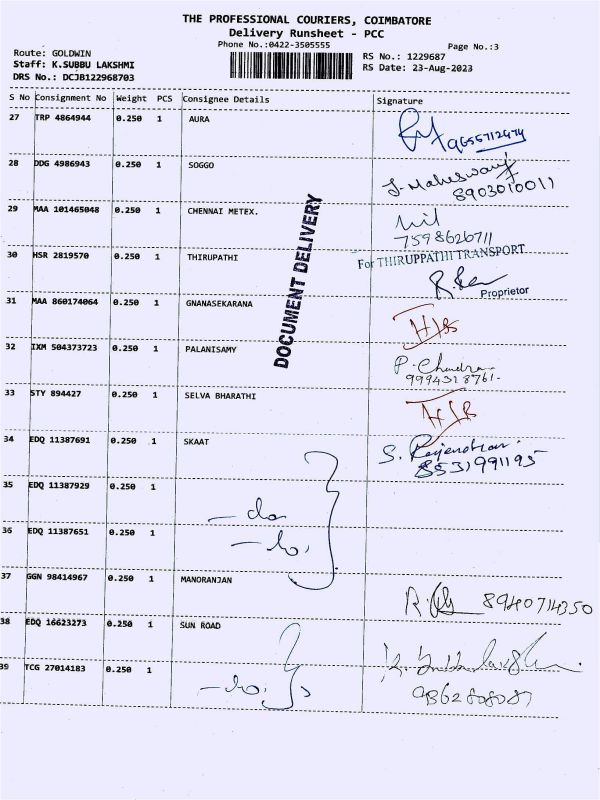 THE PROFESSIONAL COURIERS, COIMBATORE
Delivery Runsheet - PCC
Phone No.:0422-3505555
Page No.:3
Route: GOLDWIN
RS No.: 1229687
Staff: K.SUBBU LAKSHMI
RS Date: 23-Aug-2023
DRS No.: DCJB122968703
S No Consignment No Weight PCS Consignee Details Signature
27 TRP 4864944 0.250 1 AURA
9655712474
28 DDG 4986943 0.250 1 SOGGO
J. Maheswari
8903010011
29 MAA 101465048 0.250 1 CHENNAI METEX.
7598626711
30 HSR 2819570 0.250 1 THIRUPATHI
For THIRUPPATHI TRANSPORT
Proprietor
DOCUMENT DELIVERY
31 MAA 860174064 0.250 1 GNANASEKARANA
H/B
32 IXM 504373723 0.250 1 PALANISAMY
P. Chandra
9994318761.
33 STY 894427 0.250 1 SELVA BHARATHI
34 EDQ 11387691 0.250 1 SKAAT
S. Rajendran
8531991195
35 EDQ 11387929 0.250 1
- do
36 EDQ 11387651 0.250 1
- do,
37 GGN 98414967 0.250 1 MANORANJAN
8940714350
38 EDQ 16623273 0.250 1 SUN ROAD
39 TCG 27014183 0.250 1
- do,
9362808087